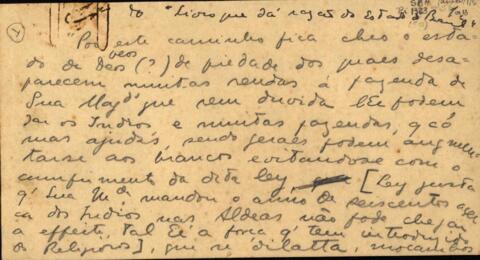 do "Livro que dá razão do Estado do Brasil"
"Por este caminho fica cheo o esta-
do de Deos (?) de piedade dos quaes desa-
parecem muitas rendas á fazenda de
Sua Magd. que sem duvida lhe podem
dar os Indios e muitas fazendas, q có
mas ajudas, sendo geraes podem augmen-
tarse aos brancos evitandose com o
cumprimento da dita ley, [Ley justa
q' Sua Mde. mandou o anno de seiscentos
ca dos Indios nas Aldeas não pode chegar
a effeito, tal hé a força q' tem introduzido
de Religiosos], que se dilatta, mocambos